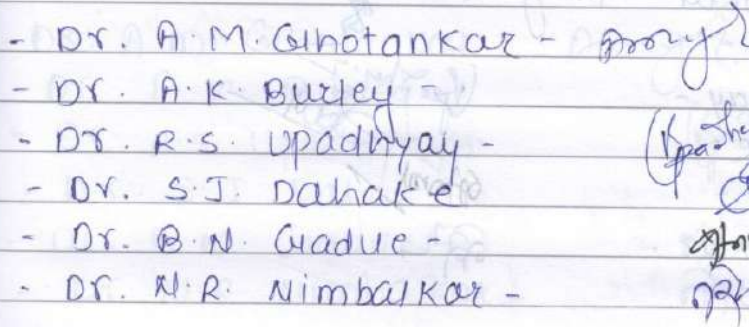 - Dr. A.M. Ghotankar -
- Dr. A.K. Burley -
- Dr. R.S. Upadhyay -
- Dr. S.J. Dahake
- Dr. B.N. Gadue -
- Dr. N.R. Nimbalkar -